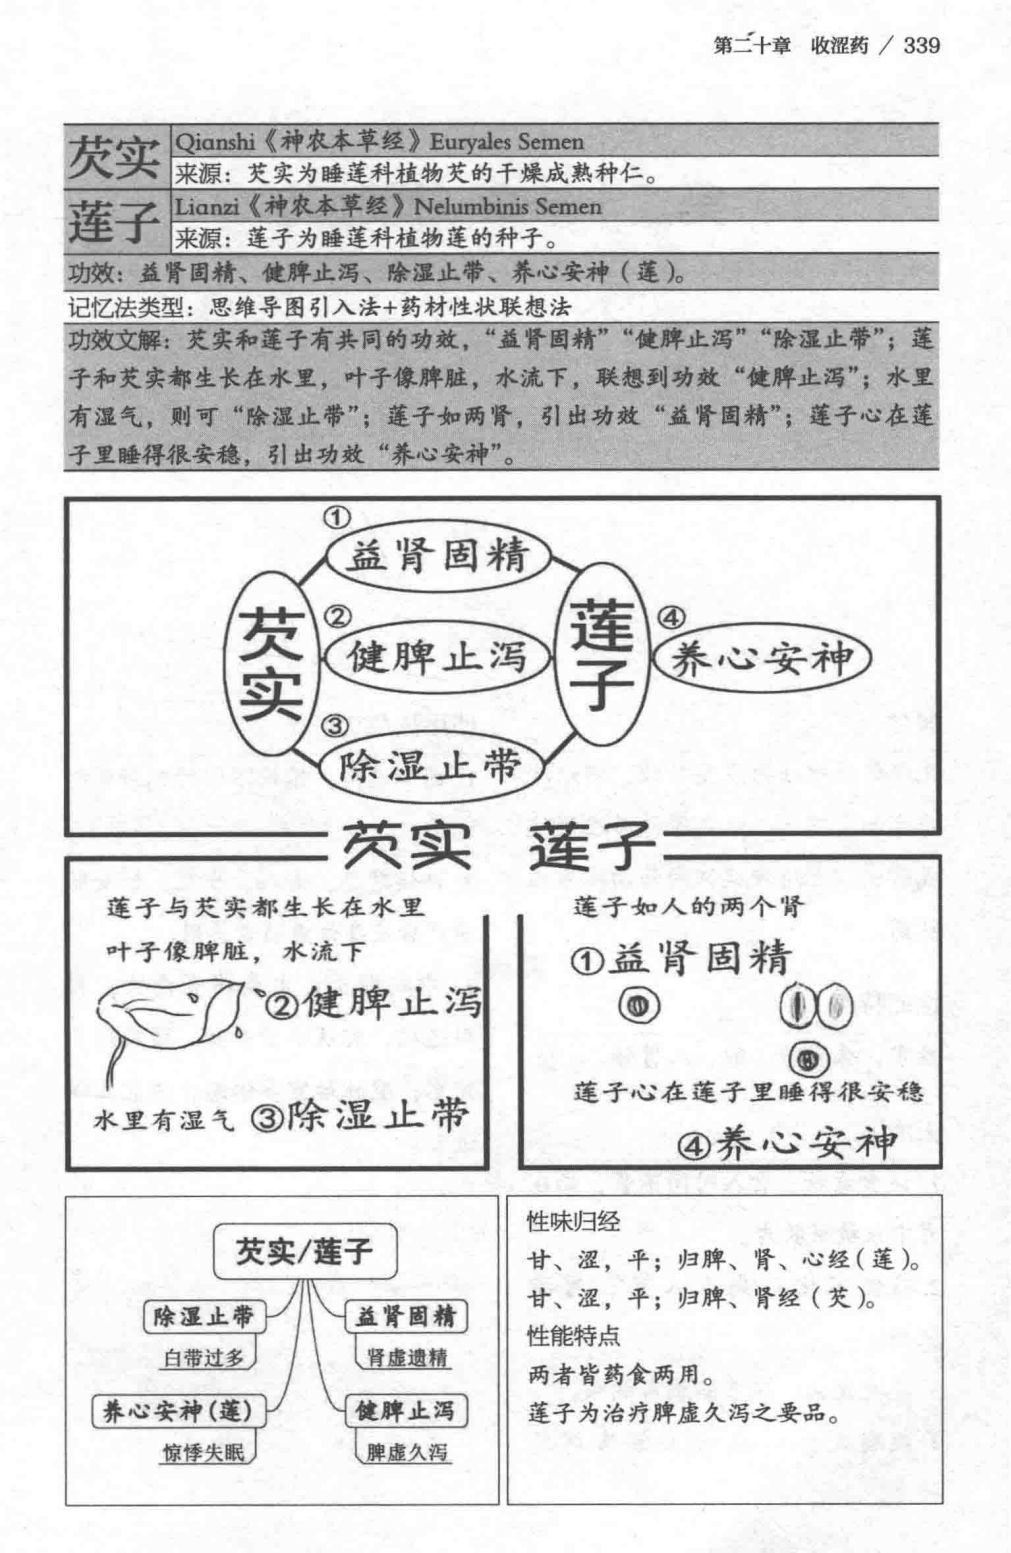 第二十章 收涩药 / 339
芡实
Qianshi《神农本草经》Euryales Semen
来源：芡实为睡莲科植物芡的干燥成熟种仁。
莲子
Lianzi《神农本草经》Nelumbinis Semen
来源：莲子为睡莲科植物莲的种子。
功效：益肾固精、健脾止泻、除湿止带、养心安神（莲）。
记忆法类型：思维导图引入法+药材性状联想法
功效文解：芡实和莲子有共同的功效，“益肾固精”“健脾止泻”“除湿止带”；莲
子和芡实都生长在水里，叶子像脾脏，水流下，联想到功效“健脾止泻”；水里
有湿气，则可“除湿止带”；莲子如两肾，引出功效“益肾固精”；莲子心在莲
子里睡得很安稳，引出功效“养心安神”。
①
益肾固精
芡实
②
健脾止泻
莲子
④
养心安神
③
除湿止带
芡实 莲子
莲子与芡实都生长在水里
叶子像脾脏，水流下
②健脾止泻
水里有湿气 ③除湿止带
莲子如人的两个肾
①益肾固精
莲子心在莲子里睡得很安稳
④养心安神
芡实/莲子
除湿止带
白带过多
益肾固精
肾虚遗精
养心安神(莲)
惊悸失眠
健脾止泻
脾虚久泻
性味归经
甘、涩，平；归脾、肾、心经（莲）。
甘、涩，平；归脾、肾经（芡）。
性能特点
两者皆药食两用。
莲子为治疗脾虚久泻之要品。